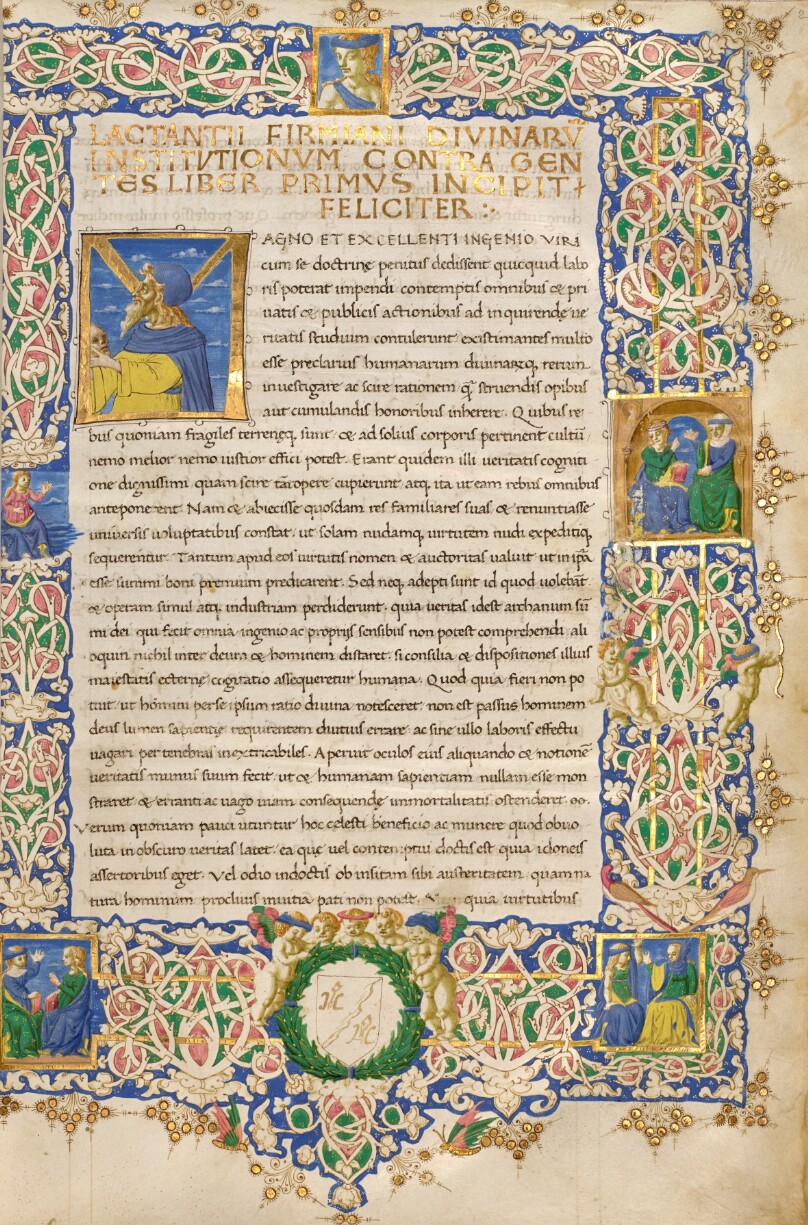 LACTANTII FIRMIANI DIVINARŪ
INSTITVTIONVM CONTRA GEN
TES LIBER PRIMVS INCIPIT
FELICITER :
MAGNO ET EXCELLENTI INGENIO VIRI
cum se doctrine penitus dedissent quicquid labo
ris poterat impendi contemptis omnibus & pri
uatis & publicis actionibus ad inquirende ue
ritatis studium contulerunt existimantes multo
esse preclarius humanarum diuinarꝝq, rerum
inuestigare ac scire rationem q̄ struendis opibus
aut cumulandis honoribus inherere. Quibus re
bus quoniam fragiles terreneq, sunt & ad solius corporis pertinent cultū
nemo melior nemo iustior effici potest. Erant quidem illi ueritatis cogniti
one dignissimi quam scire tātopere cupierunt atq, ita ut eam rebus omnibus
anteponerent. Nam & abiecisse quosdam res familiares suas & renuntiasse
uniuersis uoluptatibus constat. ut solam nudamq, uirtutem nudi expeditiq,
sequerentur. Tantum apud eos uirtutis nomen & auctoritas ualuit ut in ip̄a
esse summi boni premium predicarent. Sed neq, adepti sunt id quod uolebāt
& operam simul atq, industriam perdiderunt. quia ueritas idest archanum sū
mi dei qui fecit omnia ingenio ac proprijs sensibus non potest comprehendi. ali
oquin nichil inter deum & hominem distaret. si consilia & dispositiones illius
maiestatis eterne cogitatio assequeretur humana. Quod quia fieri non po
tuit. ut homini per se ipsum ratio diuina notesceret. non est passus hominem
deus lumen sapientie requirentem diutius errare. ac sine ullo laboris effectu
uagari per tenebras inextricabiles. Aperuit oculos eius aliquando & notionē
ueritatis munus suum fecit. ut & humanam sapientiam nullam esse mon
straret & erranti ac uago uiam consequende immortalitatis ostenderet.
Verum quoniam pauci utuntur hoc celesti beneficio ac munere quod obuo
luta in obscuro ueritas latet. ea que uel contemptui doctis est quia idoneis
assertoribus eget. Vel odio indoctis ob insitam sibi austeritatem. quam na
tura hominum procliuis in uitia pati non potest. quia uirtutibus